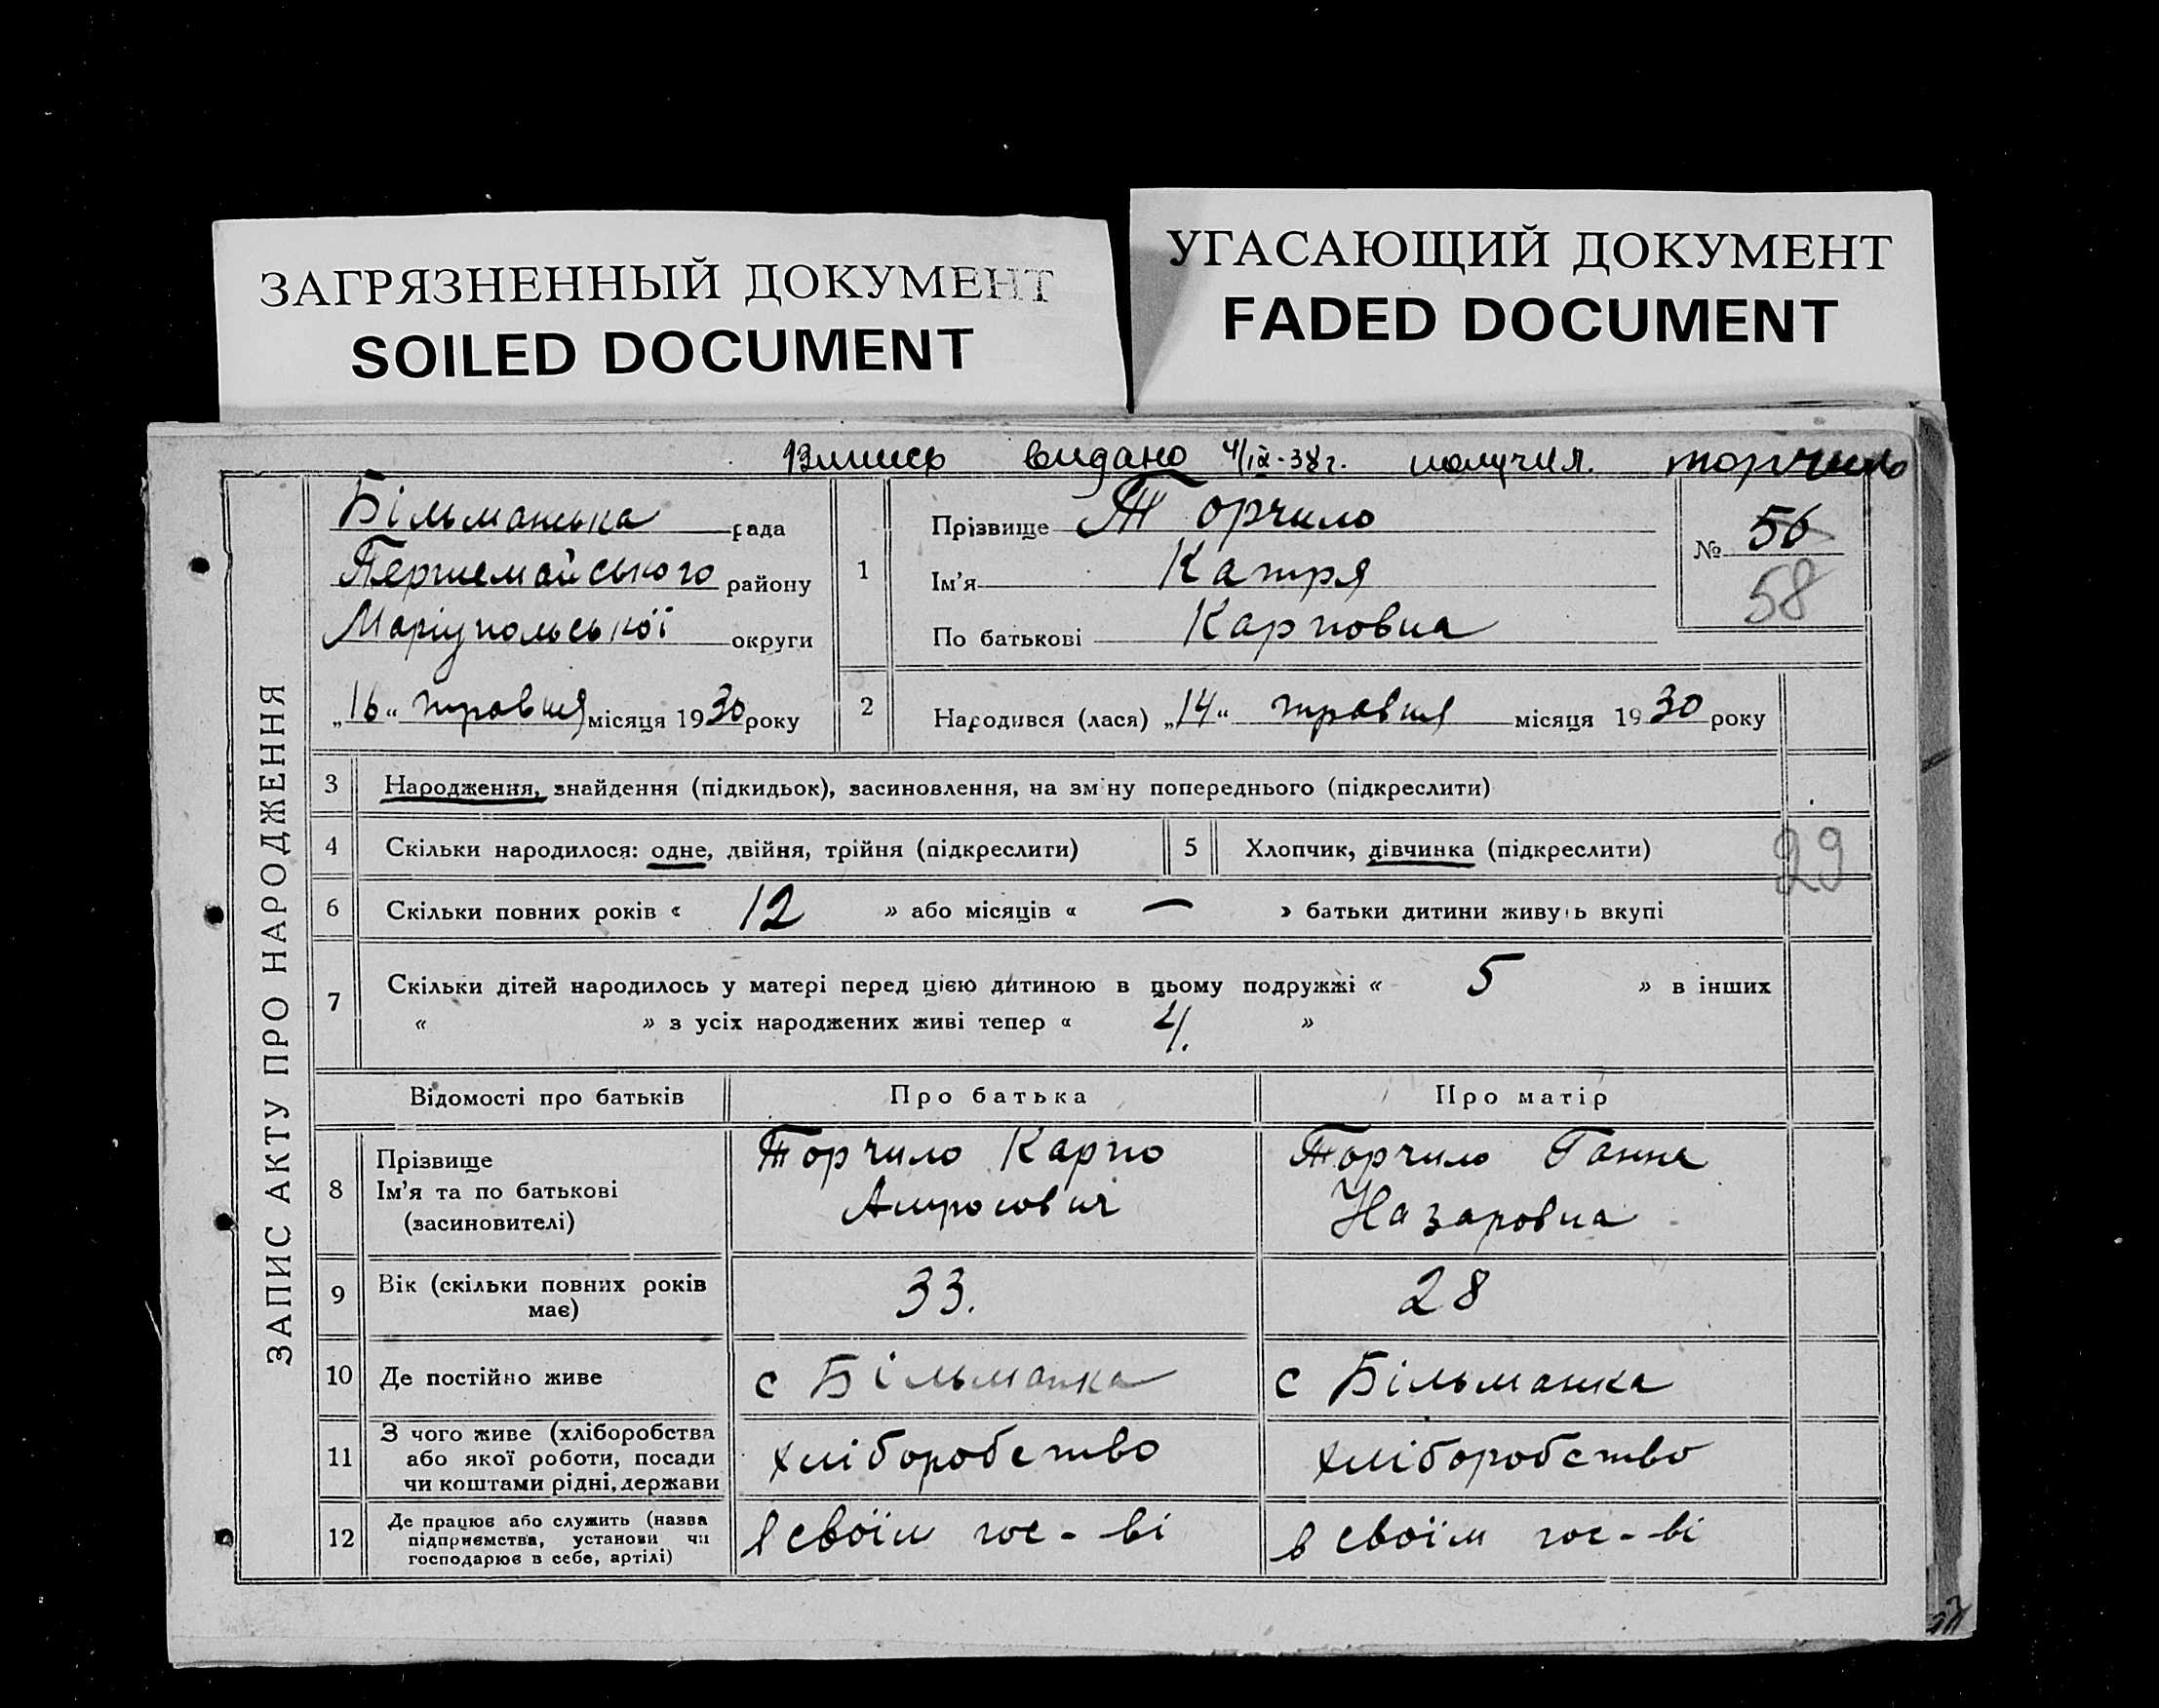 ЗАГРЯЗНЕННЫЙ ДОКУМЕНТ
SOILED DOCUMENT
УГАСАЮЩИЙ ДОКУМЕНТ
FADED DOCUMENT
видано 4/IX-38 г. получил. Торчило
ЗАПИС АКТУ ПРО НАРОДЖЕННЯ
Більманська рада
Першемайського району
Маріупольської округи
„16“ травня місяця 1930 року
1
Прізвище Торчило
Ім'я Катря
По батькові Карповна
№ 56
58
2
Народився (лася) „14“ травня місяця 1930 року
3 Народження, знайдення (підкидьок), засиновлення, на зміну попереднього (підкреслити)
4 Скільки народилося: одне, двійня, трійня (підкреслити)
5 Хлопчик, дівчинка (підкреслити)
29
6 Скільки повних років « 12 » або місяців « — » батьки дитини живуть вкупі
7 Скільки дітей народилось у матері перед цією дитиною в цьому подружжі « 5 » в інших
« » з усіх народжених живі тепер « 4. »
Відомості про батьків Про батька Про матір
8 Прізвище
Ім'я та по батькові
(засиновителі)
Торчило Карпо
Торчило Ганна
Назаровна
9 Вік (скільки повних років
має)
33. 28
10 Де постійно живе с Більманка с Більманка
11 З чого живе (хліборобства
або якої роботи, посади
чи коштами рідні, держави
хліборобство хліборобство
12 Де працює або служить (назва
підприємства, установи чи
господарює в себе, артілі)
в своїм гос-ві в своїм гос-ві